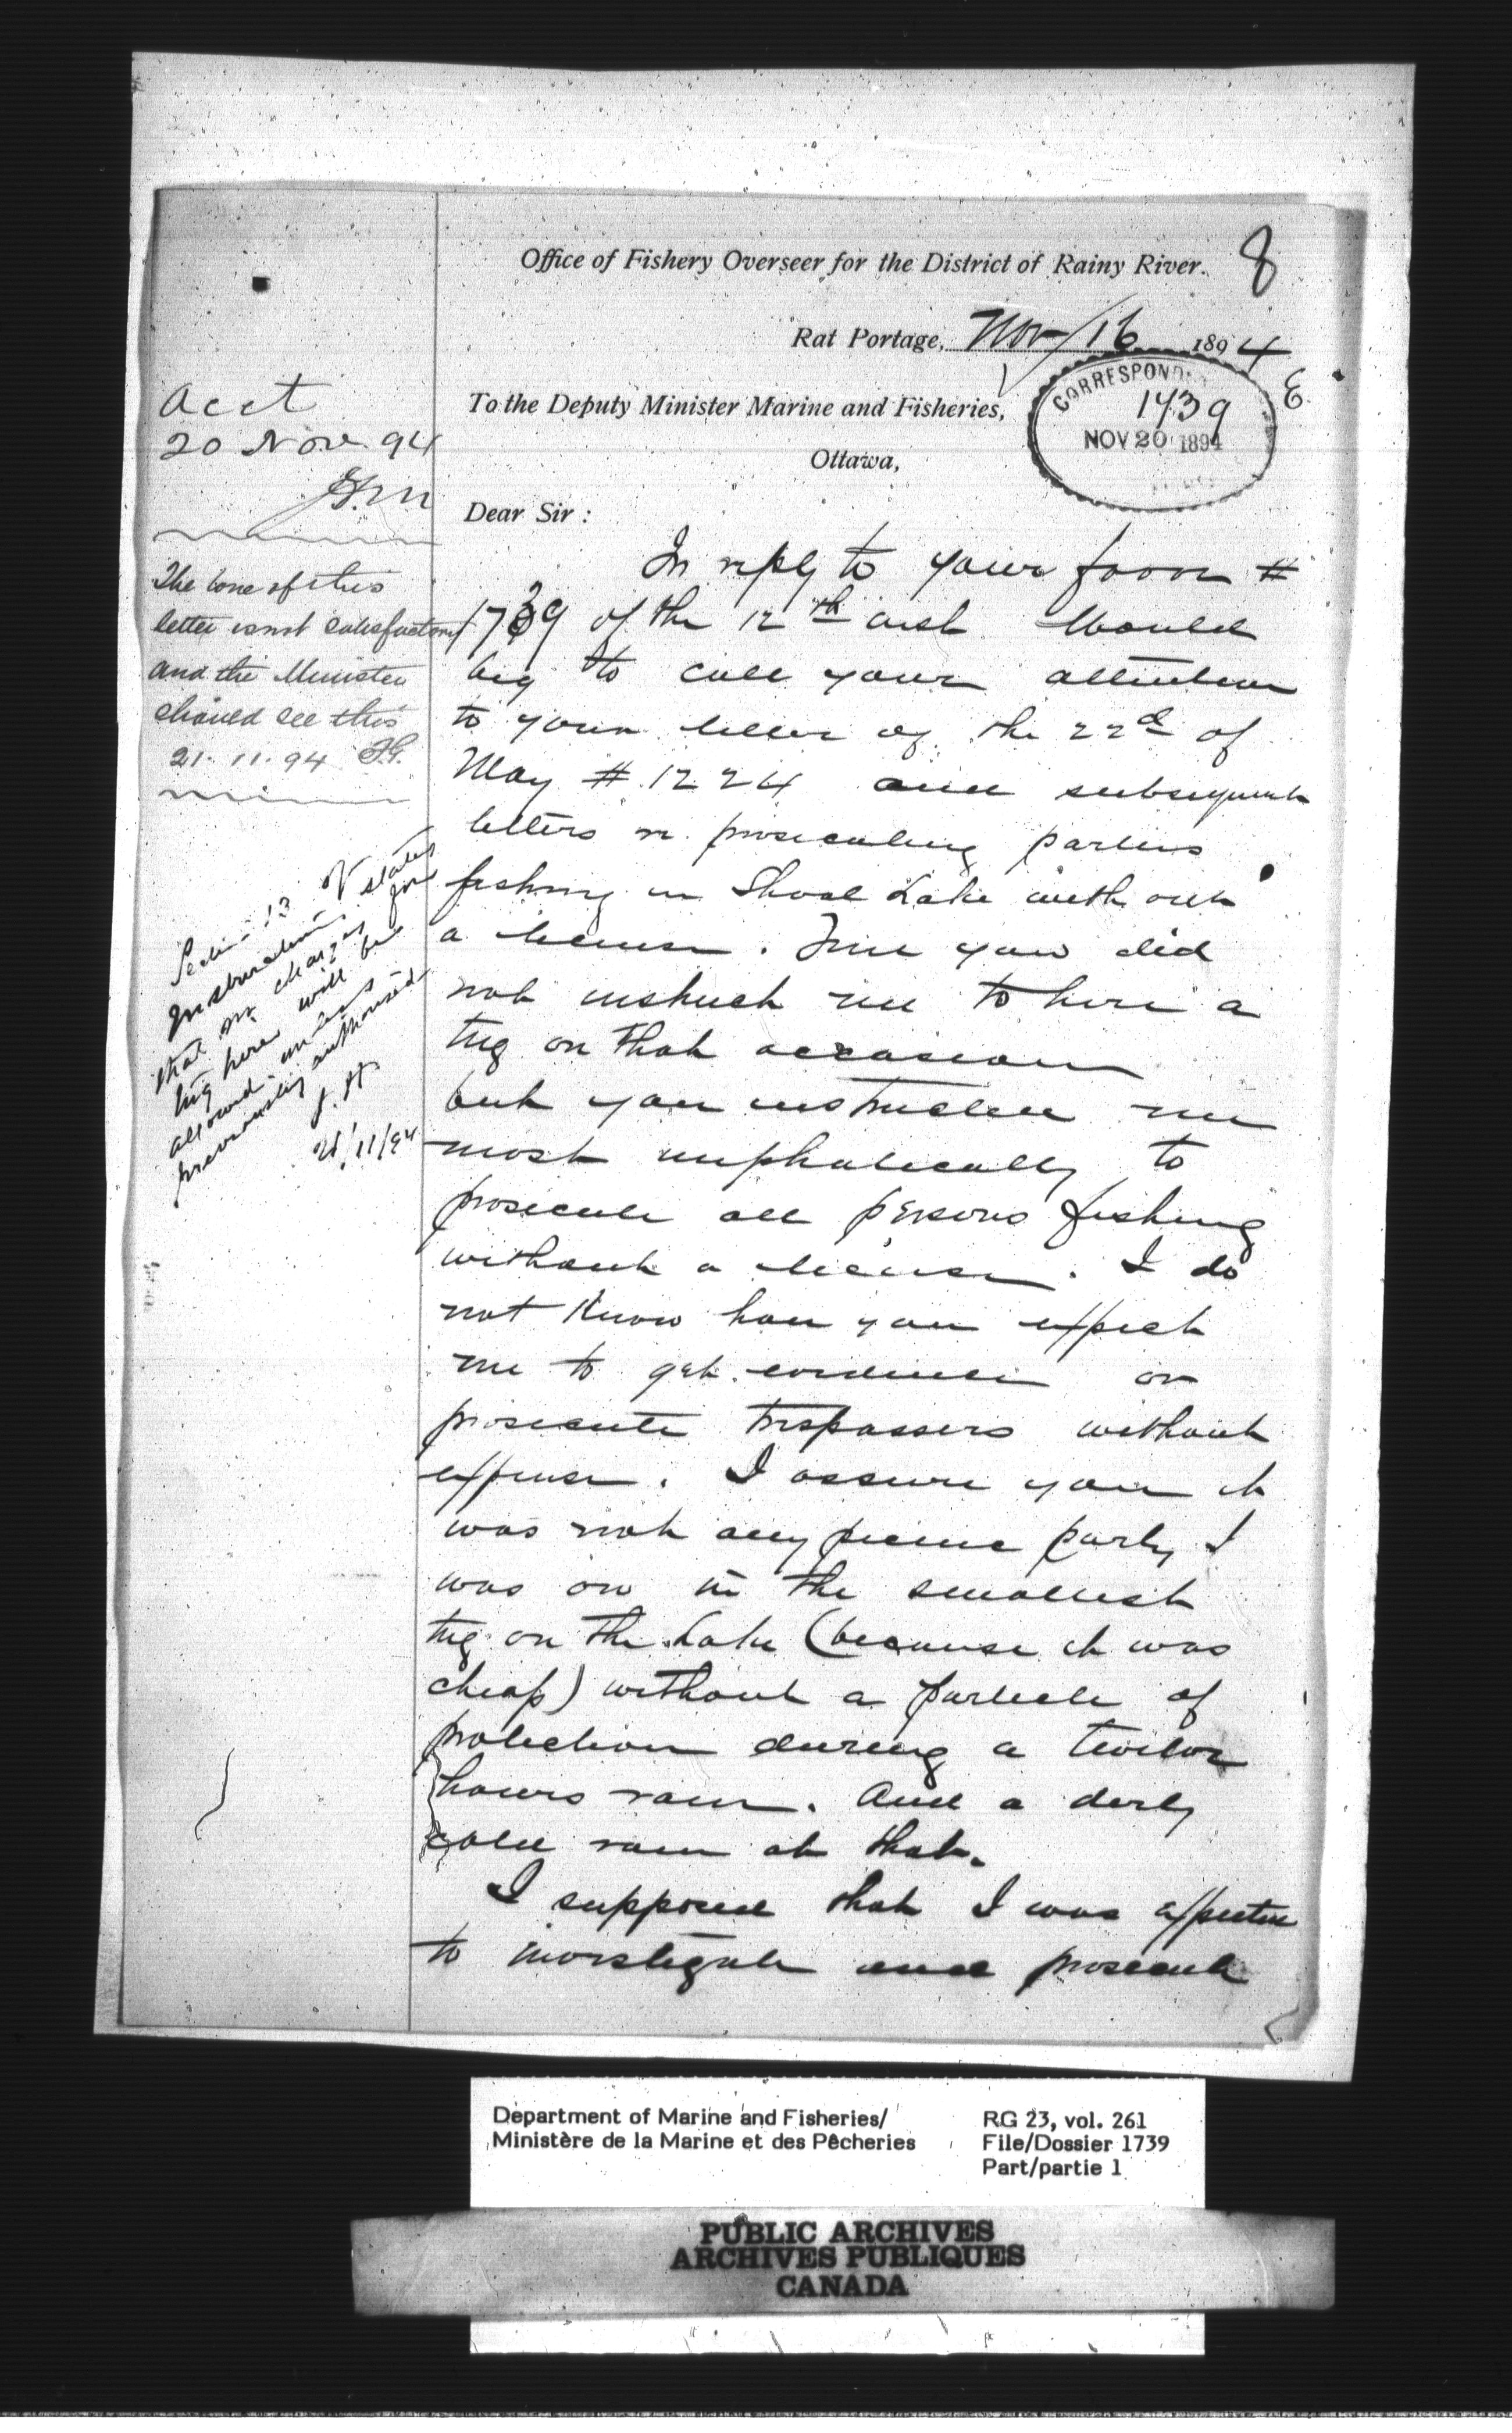 8
Office of Fishery Overseer for the District of Rainy River.
Rat Portage, Nov 16 1894
To the Deputy Minister Marine and Fisheries,
Ottawa,
CORRESPOND
1739
NOV 20 1894
Dear Sir :
In reply to your favor #
1739 of the 12th inst. Would
beg to call your attention
to your letter of the 22d of
May # 1224 and subsequent
letters re prosecuting parties
fishing in Shoal Lake without
a license. True you did
not instruct me to hire a
tug on that occasion
but you instructed me
most emphatically to
prosecute all persons fishing
without a license. I do
not know how you expect
me to get evidence or
prosecute trespassers without
expense. I assure you it
was not any picnic party I
was on in the smallest
tug on the Lake (because it was
cheap) without a particle of
protection during a twelve
hours rain. And a
cold rain at that.
I supposed that I was expected
to investigate and prosecute
Acct
20 Nov 94
The tone of this
letter is not satisfactory
and the Minister
should see this
21.11.94
Section 13 of
Instructions states
that no charges for
tug hire will be
allowed unless
previously authorised
21/11/94
Department of Marine and Fisheries/
Ministère de la Marine et des Pêcheries
RG 23, vol. 261
File/Dossier 1739
Part/partie 1
PUBLIC ARCHIVES
ARCHIVES PUBLIQUES
CANADA